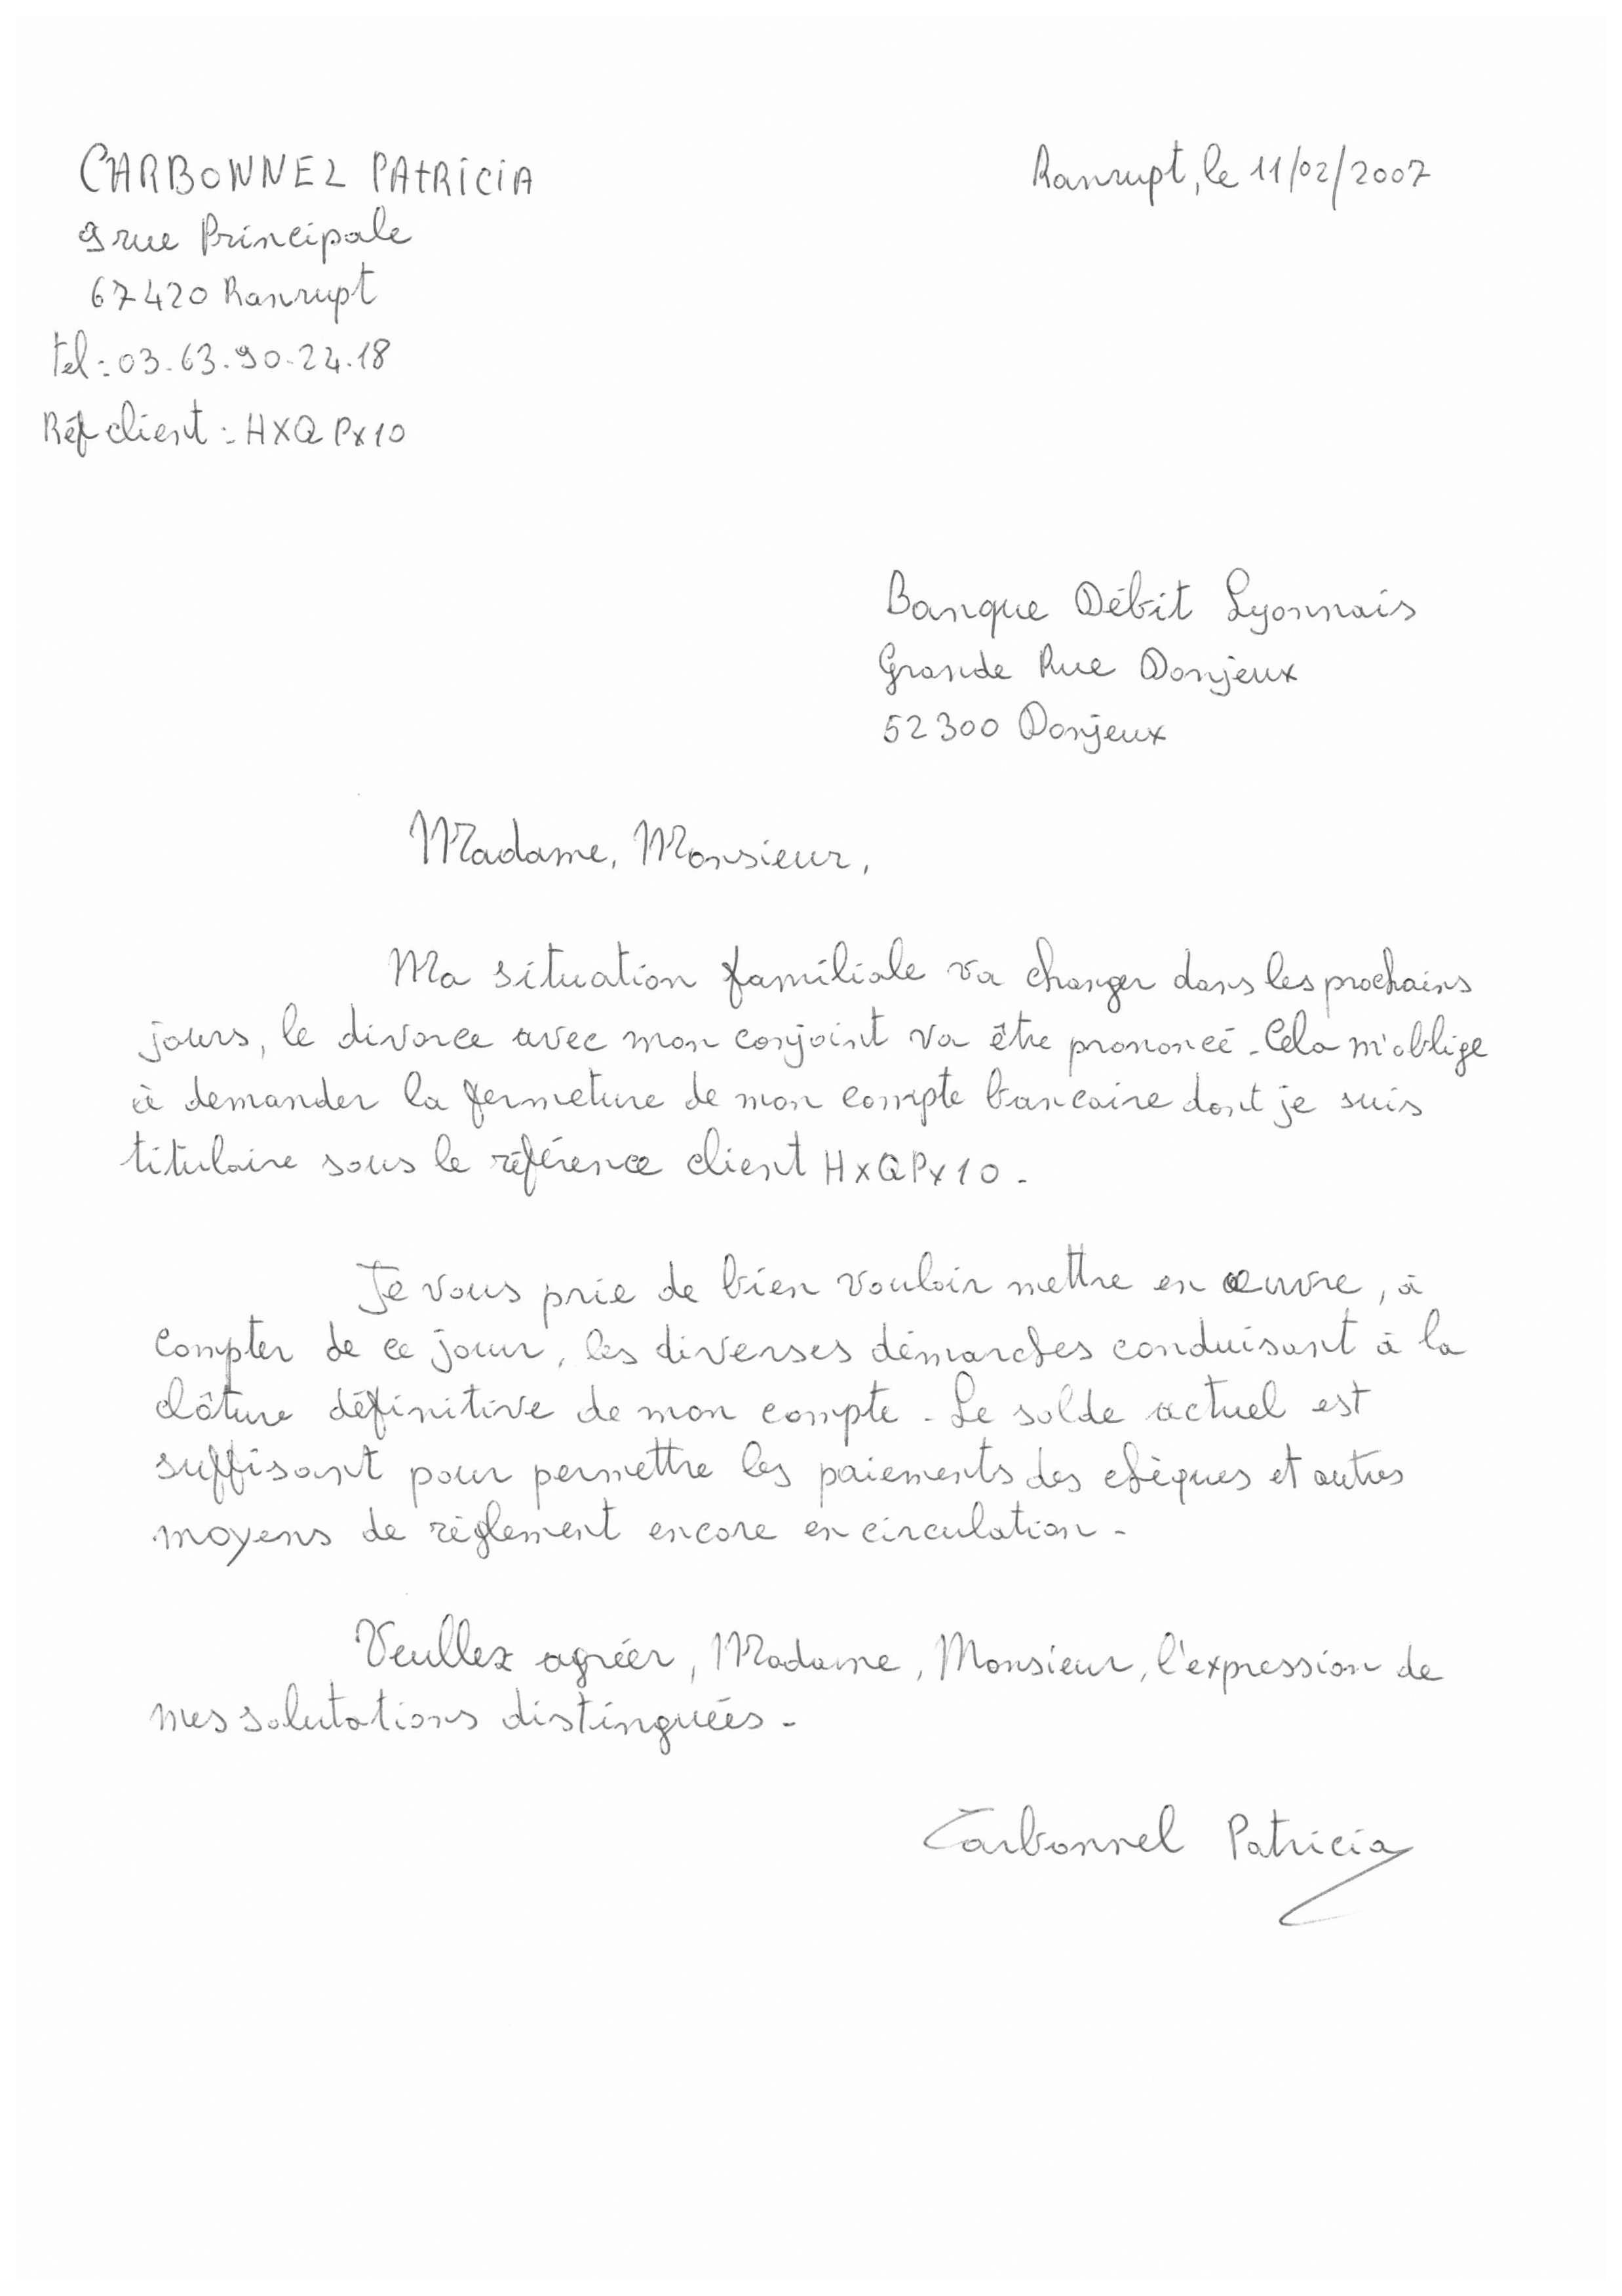 CARBONNEL PAtRiCiA
Ranrupt, le 11/02/2007
9 rue Principale
67420 Ranrupt
tel : 03.63.90.24.18
Réf client : HXQPX10
Banque Débit Lyonnais
Grande Rue Donjeux
52300 Donjeux
Madame, Monsieur,
Ma situation familiale va changer dans les prochains
jours, le divorce avec mon conjoint va être prononcé. Cela m'oblige
à demander la fermeture de mon compte bancaire dont je suis
titulaire sous le référence client HXQPX10.
Je vous prie de bien vouloir mettre en œuvre, à
compter de ce jour, les diverses démarches conduisant à la
clôture définitive de mon compte. Le solde actuel est
suffisant pour permettre les paiements des chèques et autres
moyens de règlement encore en circulation.
Veullez agréer, Madame, Monsieur, l'expression de
mes salutations distinguées.
Carbonnel Patricia